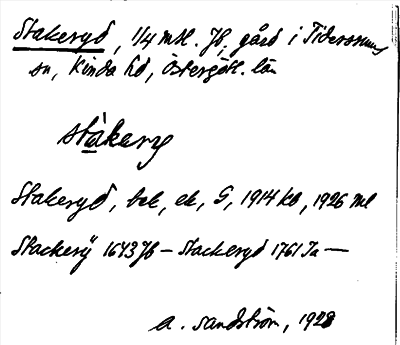 Stakeryd, 1/4 mtl. Jb, gård i Tidersrums
sn, Kinda hd, Östergötl. län
stàkery
Stakeryd, bek, ek, G, 1914 kb, 1926 ml
Stackerÿ 1643 Jb — Stackeryd 1761 Ja —
A. Sandström, 1928